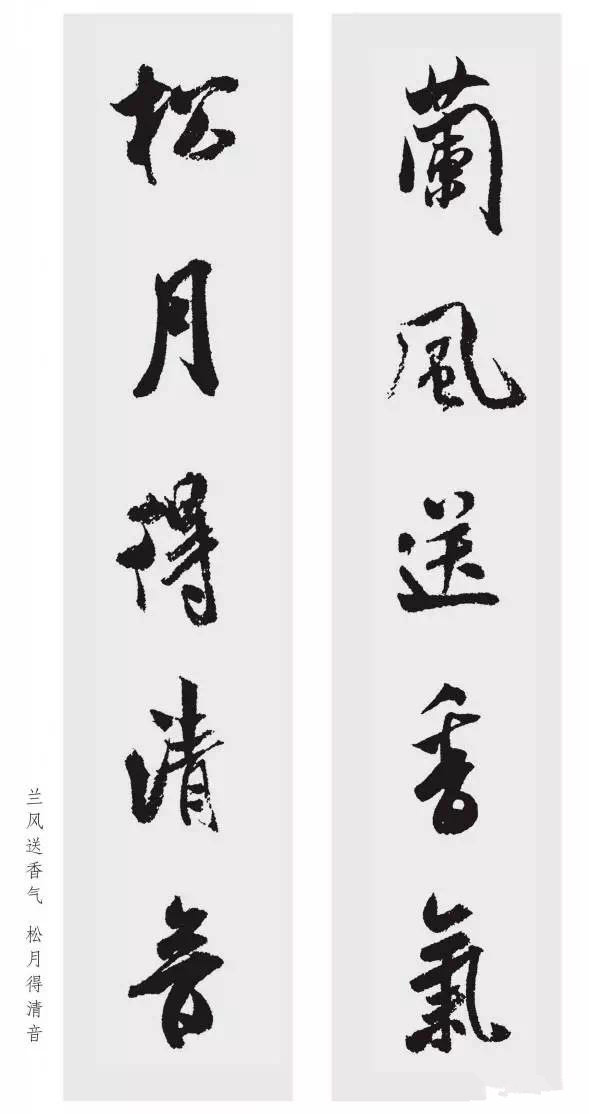 蘭風送香氣
松月得清音
兰风送香气 松月得清音